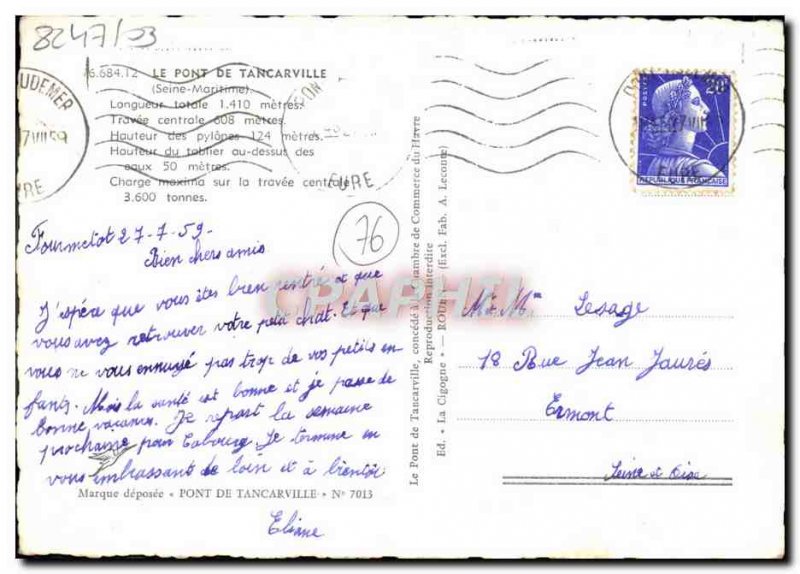 8247/53
76.684.12 LE PONT DE TANCARVILLE
(Seine-Maritime)
Longueur totale 1.410 mètres.
Travée centrale 608 mètres.
Hauteur des pylônes 124 mètres.
Hauteur du tablier au-dessus des
eaux 50 mètres.
Charge maxima sur la travée centrale
3.600 tonnes.
UDEMER
17 VII 59
EURE
EURE
POSTES
20F
REPUBLIQUE FRANÇAISE
EURE
76
Fourmetot 27-7-59-
Bien chers amis
J'espére que vous êtes bien rentré et que
vous avez retrouver votre petit chat. Et que
vous ne vous ennuyé pas trop de vos petits en
fants. Moi la santé est bonne et je passe de
bonne vacances. Je repart la semaine
prochaine pour Cabourg. Je termine en
vous embrassant de loin et à bientôt
Eliane
Marque déposée « PONT DE TANCARVILLE » Nº 7013
Le Pont de Tancarville, concédé à la Chambre de Commerce du Havre
Reproduction interdite
Ed. « La Cigogne » — ROUEN (Excl. Fab. A. Leconte)
CPAPHIL
Mr Mme Lesage
18 Rue Jean Jaurés
Ermont
Seine et Oise